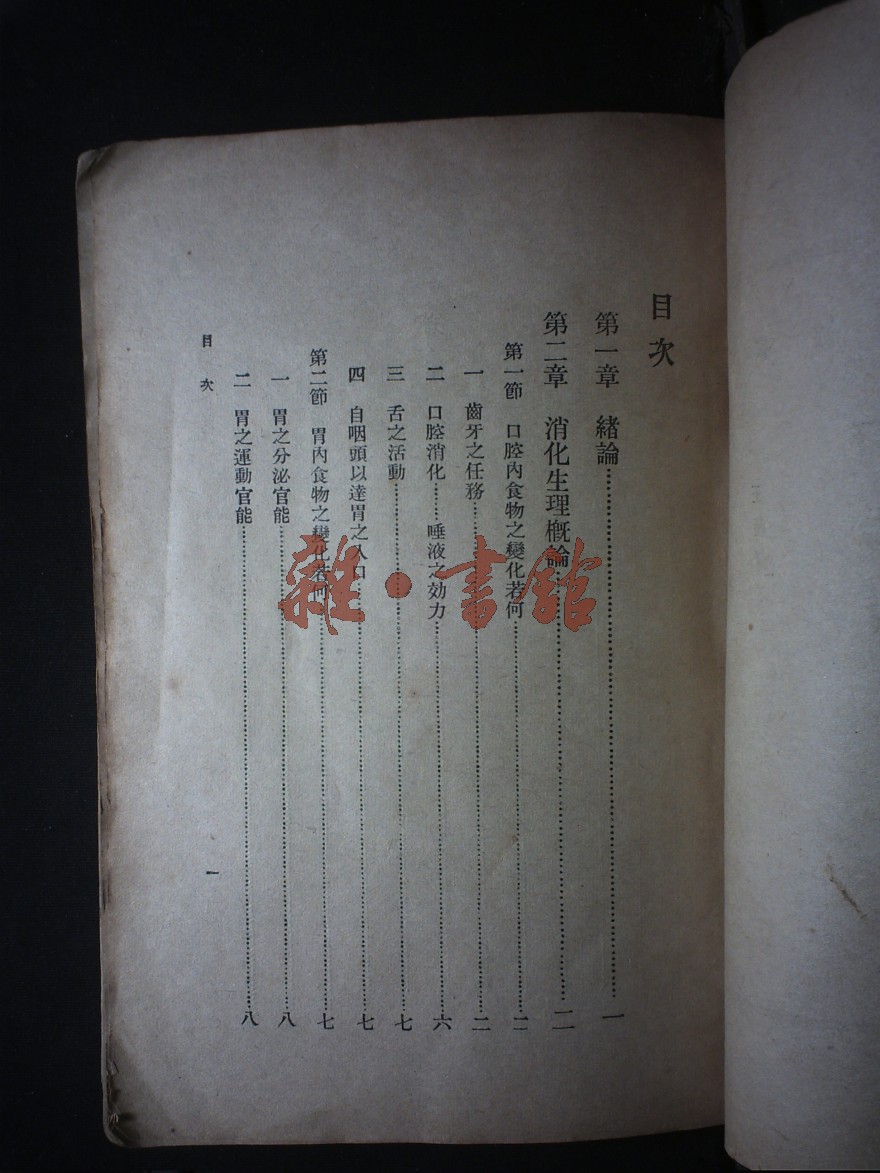 目次
第一章　緒論…………一
第二章　消化生理概論…………二
第一節　口腔內食物之變化若何…………二
一　齒牙之任務…………二
二　口腔消化……唾液之効力…………六
三　舌之活動…………七
四　自咽頭以達胃之入口…………七
第二節　胃內食物之變化若何…………七
一　胃之分泌官能…………八
二　胃之運動官能…………八
目次
一
雜·書館